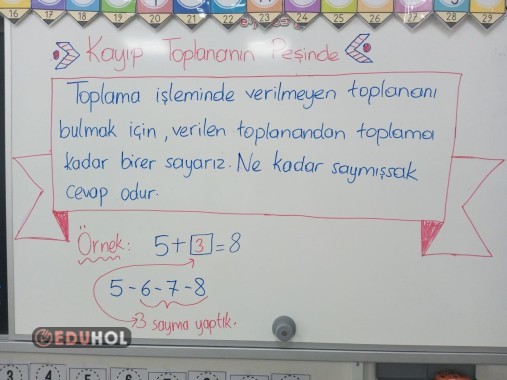 16 17 18 19 20 21 22 23 24 25 26 27 28 29
Kayıp Toplananın Peşinde
Toplama işleminde verilmeyen toplananı
bulmak için, verilen toplanandan toplama
kadar birer sayarız. Ne kadar saymışsak
cevap odur.
Örnek: 5+3=8
5-6-7-8
3 sayma yaptık.
EDUHOL
3 4 5 6 7 8